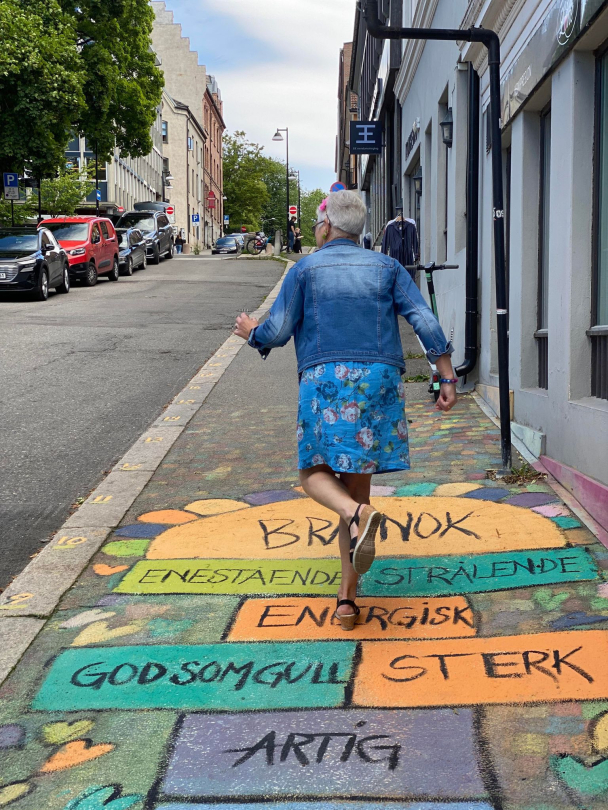 P
BRA NOK
ENESTÅENDE STRÅLENDE
ENERGISK
GOD SOM GULL STERK
ARTIG